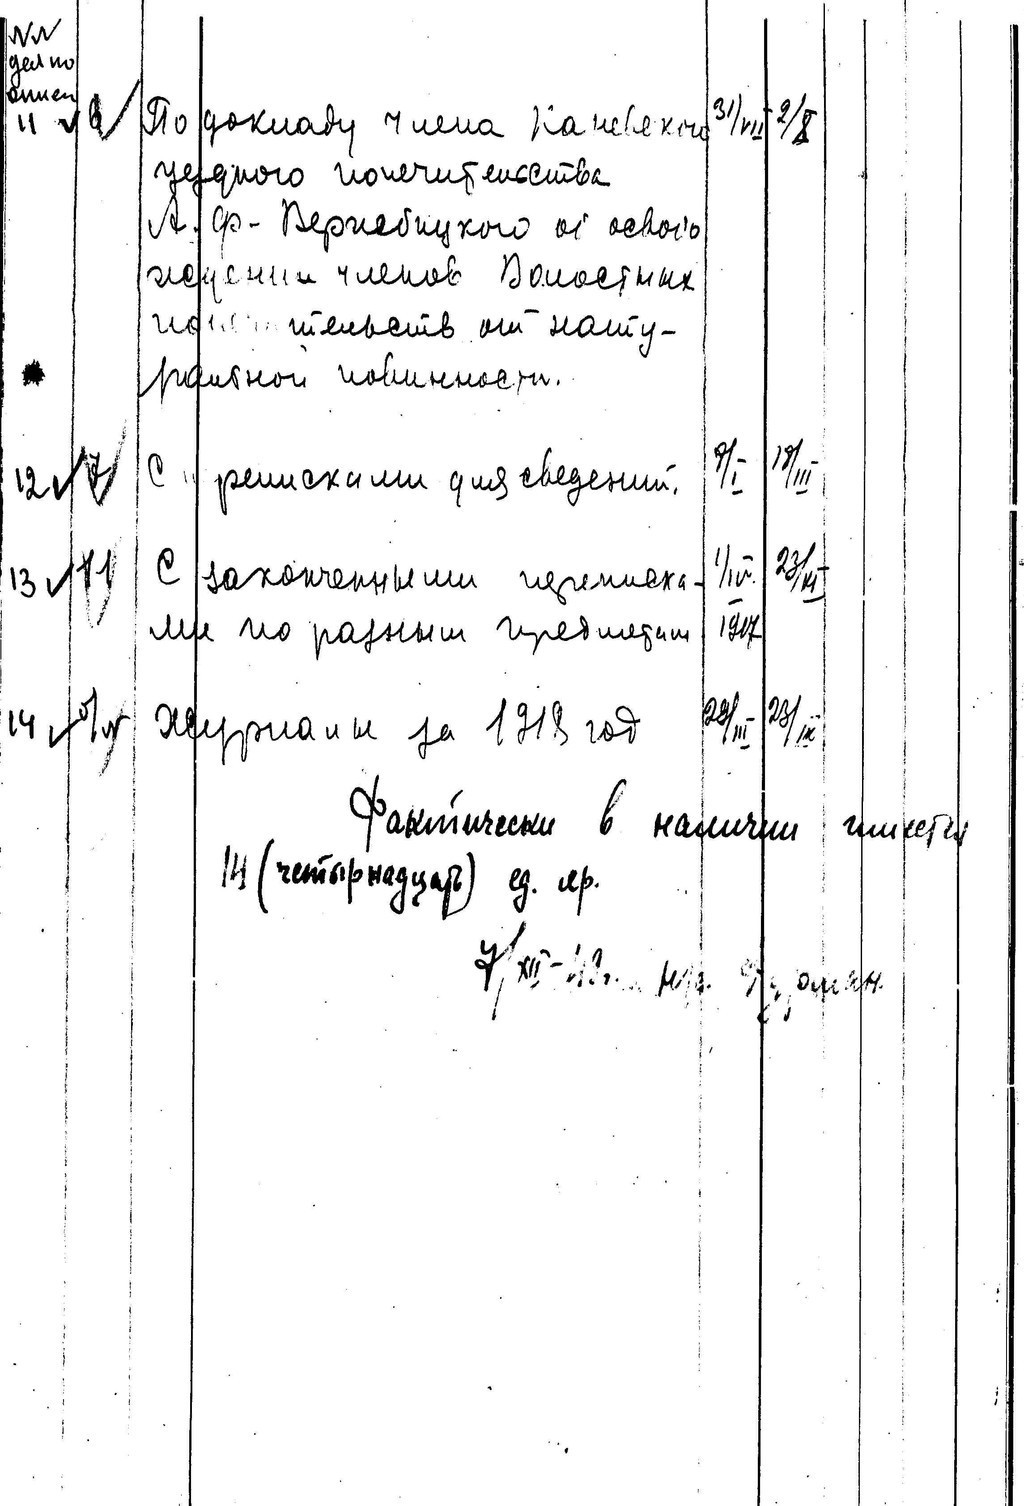 NN
дел по
описи
11 По докладу члена Каневского 31/VII 2/X
уездного попечительства
А. Ф. об освобо
ждении членов Волостных
попечительств от нату-
ральной повинности.
12 7 С переписками для сведений. 9/I 18/III
13 11 С законченными переписка- 1/IV 23/XI
ми по разным предметам 1917
14 б/н Журналы за 1918 год 28/III 23/IX
Фактически в наличии имеется
14 (четырнадцать) ед. хр.
7/XII-